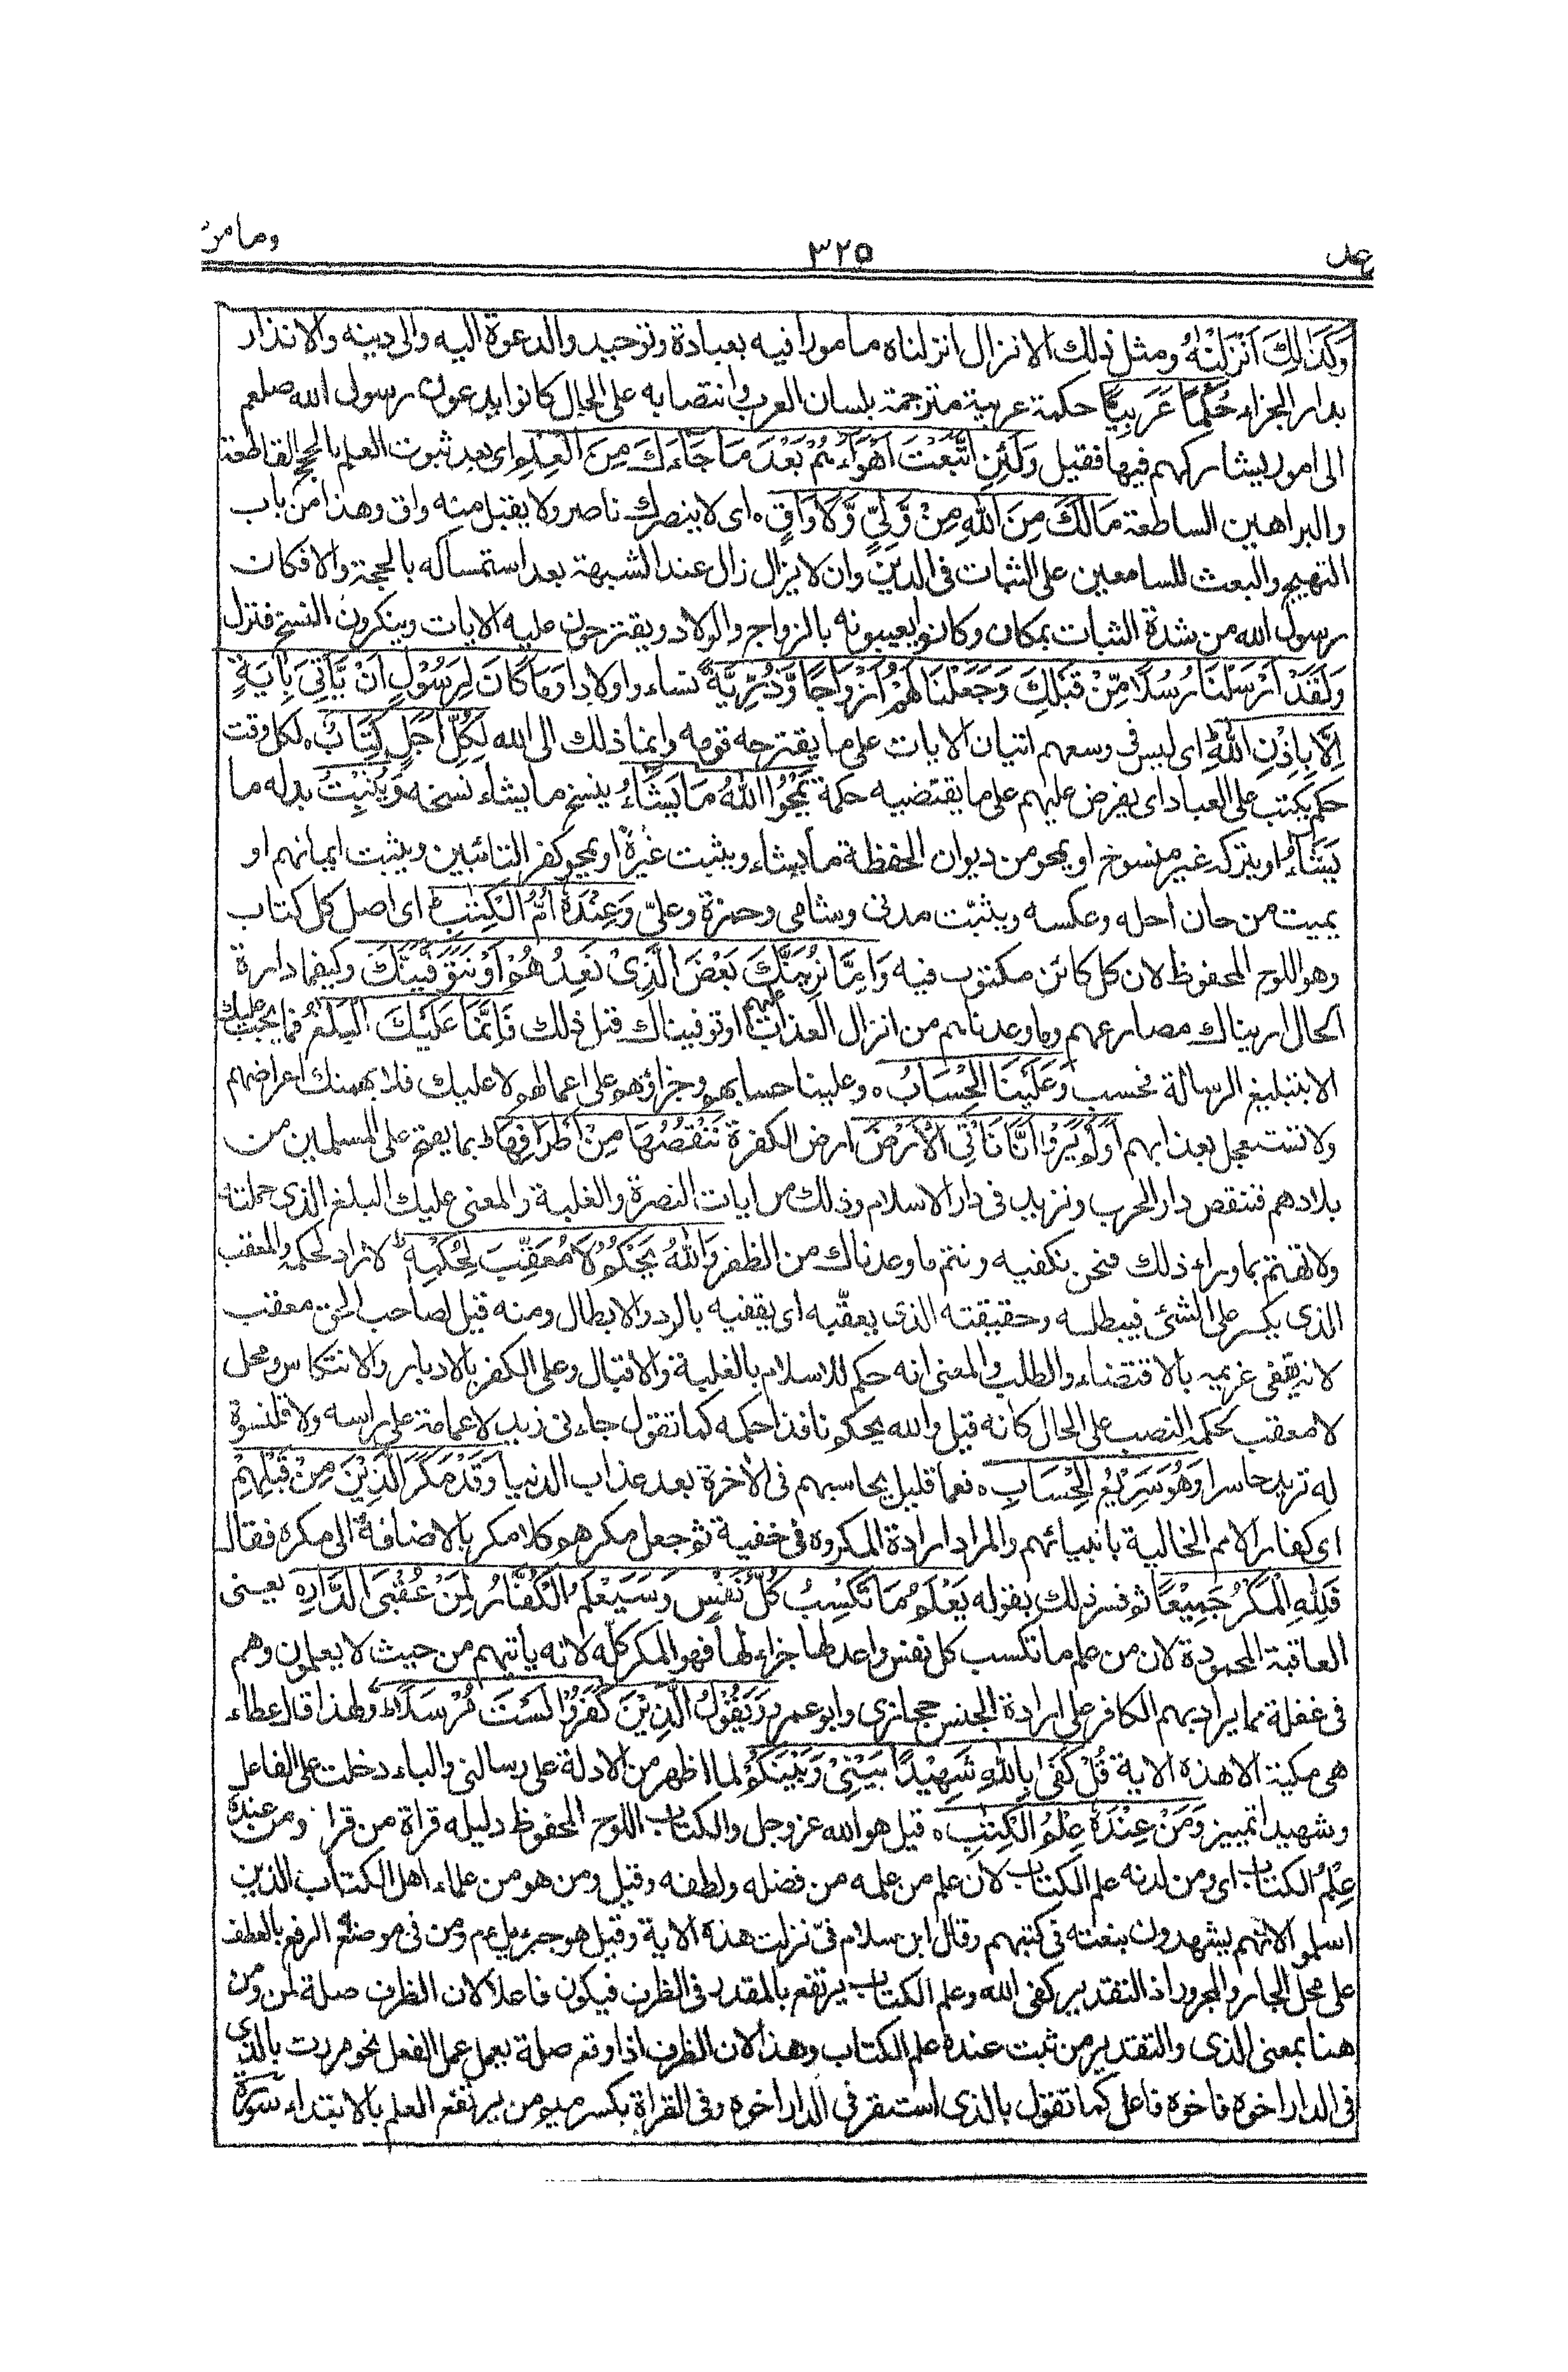 رعد ٣٢٥ وما من
وَكَذٰلِكَ اَنْزَلْنٰهُ ومثل ذلك الانزال انزلناه مامورا فيه بعبادة وتوحيد والدعوة اليه والى دينه والانذار
بدار الجزاء حُكْمًا عَرَبِيًّا حكمة عربية مترجمة بلسان العرب وانتصابه على الحال كانوا يدعون رسول الله صلعم
الى امور يشاركهم فيها فقيل وَلَئِنِ اتَّبَعْتَ اَهْوَآءَهُمْ بَعْدَ مَا جَآءَكَ مِنَ الْعِلْمِ اى بعد ثبوت العلم بالحجج القاطعة
والبراهين الساطعة مَالَكَ مِنَ اللهِ مِنْ وَّلِيٍّ وَّلَا وَاقٍ ه اى لا ينصرك ناصر ولا يقيك منه واق وهذا من باب
التهييج والبعث للسامعين على الثبات فى الدين وان لا يزال زال عند الشبهة بعد استمساكه بالحجة والا فكان
رسول الله من شدة الثبات بمكان وكانوا يعيبونه بالزواج والولاد ويقترحون عليه الايات وينكرون النسخ فنزل
وَلَقَدْ اَرْسَلْنَا رُسُلًا مِّنْ قَبْلِكَ وَجَعَلْنَا لَهُمْ اَزْوَاجًا وَّذُرِّيَّةً نساء واولادا وَمَا كَانَ لِرَسُوْلٍ اَنْ يَّاْتِيَ بِاٰيَةٍ
اِلَّا بِاِذْنِ اللهِ ط اى ليس فى وسعهم اتيان الايات على ما يقترحه قومه وانما ذلك الى الله لِكُلِّ اَجَلٍ كِتَابٌ ه لكل وقت
حكم يكتب على العباد اى يفرض عليهم على ما يقتضيه حكمة يَمْحُوا اللهُ مَا يَشَآءُ ينسخ ما يشاء نسخه وَيُثْبِتُ بدله ما
يَشَآءُ او يتركه غير منسوخ او يمحو من ديوان الحفظة ما يشاء ويثبت غيرة او يمحو كفر التائبين ويثبت ايمانهم او
يميت من حان اجله وعكسه ويثبّت مدنى وشامى وحمزة وعلىّ وَعِنْدَهٗ اُمُّ الْكِتٰبِ ط اى اصل كل كتاب
وهو اللوح المحفوظ لان كل كائن مكتوب فيه وَاِمَّا نُرِيَنَّكَ بَعْضَ الَّذِيْ نَعِدُهُمْ اَوْ نَتَوَفَّيَنَّكَ وكيفما دارة
الحال اريناك مصارعهم وما وعدناهم من انزال العذاب عليهم او توفيناك قبل ذلك فَاِنَّمَا عَلَيْكَ الْبَلٰغُ فما يجب عليك
الا تبليغ الرسالة فحسب وَعَلَيْنَا الْحِسَابُ ه وعلينا حسابهم وجزاؤهم على اعمالهم لا عليك فلا يهمنك اعراضهم
ولا تستعجل بعذابهم اَوَلَمْ يَرَوْا اَنَّا نَاْتِي الْاَرْضَ ارض الكفرة نَنْقُصُهَا مِنْ اَطْرَافِهَا ط بما يفتح على المسلمين من
بلادهم فننقص دار الحرب ونزيد فى دار الاسلام وذلك من ايات النصرة والغلبة والمعنى عليك البلغ الذى حملته
ولا تهتم بما وراء ذلك فنحن نكفيه ونتم ما وعدناك من الظفر وَاللهُ يَحْكُمُ لَا مُعَقِّبَ لِحُكْمِهٖ ط لا راد لحكمه والمعقب
الذى يكر على الشئ فيبطله وحقيقته الذى يعقّبه اى يقفيه بالرد والابطال ومنه قيل لصاحب الحق معقب
لانه يقفى غريمه بالاقتضاء والطلب والمعنى انه حكم للاسلام بالغلبة والاقبال وعلى الكفر بالادبار والانتكاس ومحل
لا معقب لحكمه النصب على الحال كانه قيل والله يحكم نافذا حكمه كما تقول جاءنى زيد لا عمامة على راسه ولا قلنسوة
له تريد حاسرا وَهُوَ سَرِيْعُ الْحِسَابِ ه فعما قليل يحاسبهم فى الاخرة بعد عذاب الدنيا وَقَدْ مَكَرَ الَّذِيْنَ مِنْ قَبْلِهِمْ
اى كفار الامم الخالية بانبيائهم والمراد ارادة المكروه فى خفية ثم جعل مكرهم كلا مكر بالاضافة الى مكره فقال
فَلِلّٰهِ الْمَكْرُ جَمِيْعًا ثم فسر ذلك بقوله يَعْلَمُ مَا تَكْسِبُ كُلُّ نَفْسٍ وَسَيَعْلَمُ الْكُفَّارُ لِمَنْ عُقْبَى الدَّارِ ه يعنى
العاقبة المحمودة لان من علم ما تكسب كل نفس واعد لها جزاء لها فهو المكر كله لانه ياتيهم من حيث لا يعلمون وهم
فى غفلة مما يراد بهم الكافر على ارادة الجنس حجازى وابو عمرو وَيَقُوْلُ الَّذِيْنَ كَفَرُوْا لَسْتَ مُرْسَلًا ط ولهذا قال عطاء
هى مكية الا هذه الاية قُلْ كَفٰى بِاللهِ شَهِيْدًا بَيْنِيْ وَبَيْنَكُمْ لما اظهر من الادلة على رسالتى والباء دخلت على الفاعل
وشهيدا تمييز وَمَنْ عِنْدَهٗ عِلْمُ الْكِتٰبِ ه قيل هو الله عز وجل والكتاب اللوح المحفوظ دليله قراة من قرا ومن عندِهِ
عِلْمُ الكتاب اى ومن لدنه علم الكتاب لان علم من علمه من فضله ولطفه وقيل ومن هو من علماء اهل الكتاب الذين
اسلموا لانهم يشهدون بنعته فى كتبهم وقال ابن سلام فىّ نزلت هذه الاية وقيل هو جبرءيل عم ومن فى موضع الرفع بالعطف
على محل الجار والمجرور اذ التقدير كفى الله وعلم الكتاب يرتفع بالمقدر فى الظرف فيكون فاعلا لان الظرف صلة لمن ومن
هنا بمعنى الذى والتقدير من ثبت عندة علم الكتاب وهذا لان الظرف اذا وقع صلة يعمل عمل الفعل نحو مررت بالذى
فى الدار اخوه فاخوه فاعل كما تقول بالذى استقر فى الدار اخوه وفى القراة بكسر ميم من يرتفع العلم بالابتداء سورة